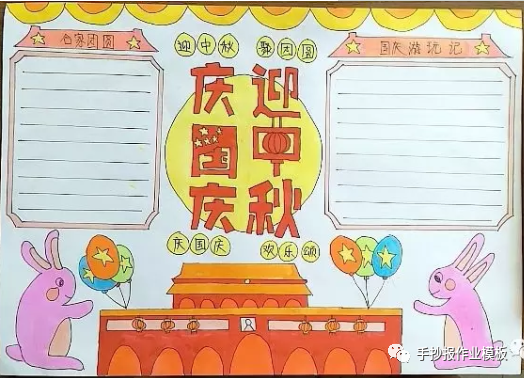 团圆
迎中秋 聚团圆
国庆游玩记
迎中秋
庆国庆
庆国庆 欢乐颂
手抄报作业模板